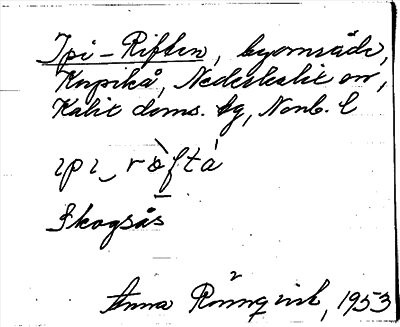 Ipi-Riften, byområde,
Korpikå, Nederkalix sn,
Kalix doms. tg, Norrb. l
ɩpɩ röftá
Skogsås
Anna Rönnqvist, 1953